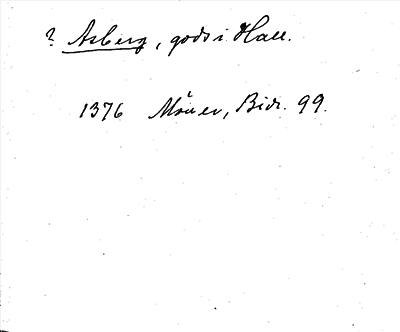 ? Asberg, gods i Hall.
1376 Möller, Bidr. 99.